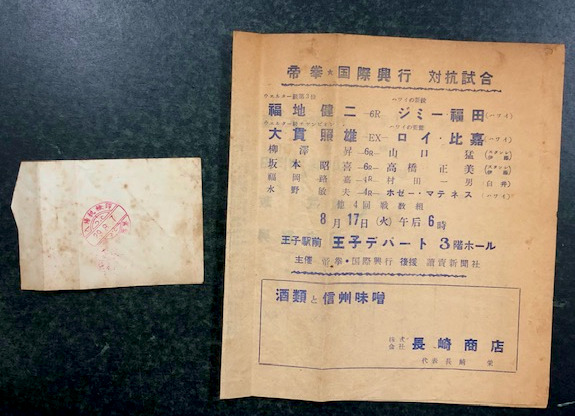 帝拳★国際興行 対抗試合
ウェルター級第3位 ハワイの若鷲
福地健二―6R―ジミー福田(ハワイ)
大貫照雄―EX―ロイ・比嘉(ハワイ)
柳澤 昇―6R―山口 猛
坂本昭喜―6R―高橋正美
福岡路嘉―4R―村田一男(臼井)
水野敏夫―4R―ホゼー・マテネス(ハワイ)
他4回戦数組
8月17日(火)午后6時
王子駅前 王子デパート3階ホール
主催 帝拳・国際興行 後援 讀賣新聞社
酒類と信州味噌
株式会社 長崎商店
代表 長崎 栄